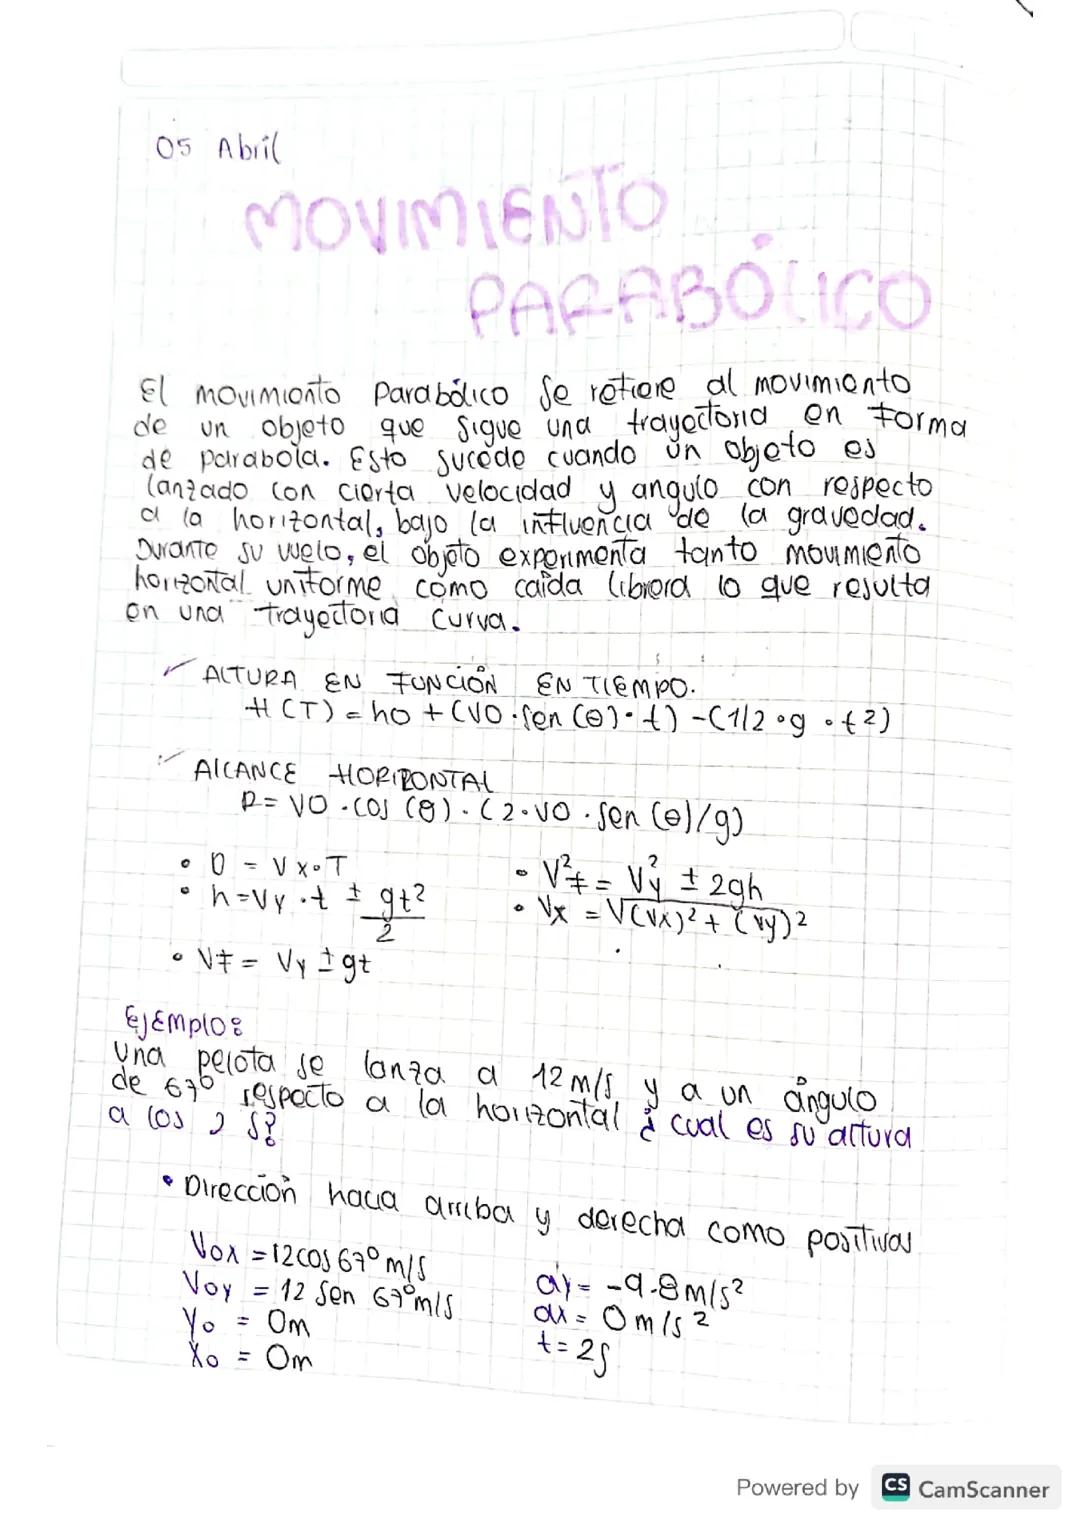 05 Abril
MOVIMIENTO
PARABÓLICO
El movimiento Parabólico se refiere al movimiento
de un objeto que sigue una trayectoria en forma
de parabola. Esto sucede cuando un objeto es
lanzado con cierta velocidad y angulo con respecto
a la horizontal, bajo la influencia de la gravedad.
Durante su vuelo, el objeto experimenta tanto movimiento
horizontal uniforme como caída librera lo que resulta
en una trayectoria curva.
ALTURA EN FUNCIÓN EN TIEMPO.
H(T) = ho + (VO · sen (θ) · t) - (1/2 · g · t²)
AlCANCE HORIZONTAL
R = VO · cos (θ) · (2 · VO · sen (θ)/g)
• D = Vx · T • V²f = Vy² ± 2gh
• h = Vy · t ± gt²/2 • Vx = √(Vx)² + (vy)²
• Vf = Vy ± gt
Ejemplo:
Una pelota se lanza a 12 m/s y a un ángulo
de 67° respecto a la horizontal ¿ cual es su altura
a los 2 s?
• Dirección hacia arriba y derecha como positivas
Vox = 12cos 67° m/s
Voy = 12 Sen 67° m/s ay = -9.8 m/s²
Yo = 0m ax = 0 m/s²
Xo = 0m t = 2s
Powered by CS CamScanner